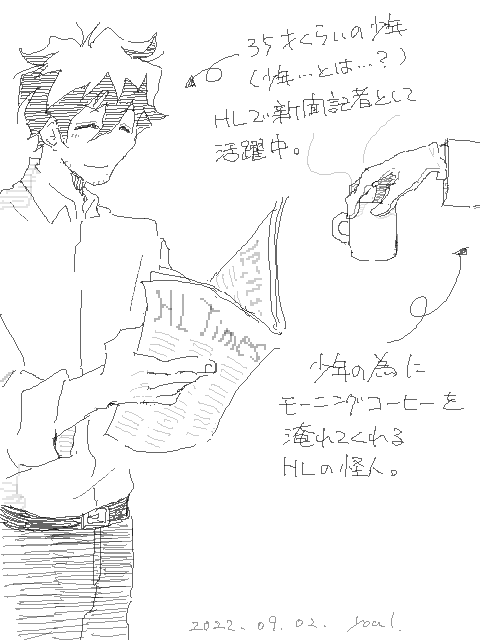 35才くらいの少年
(少年…とは…?)
HLで新聞記者として
活躍中。
HL Times
少年の為に
モーニングコーヒーを
淹れてくれる
HLの怪人。
2022.09.02.